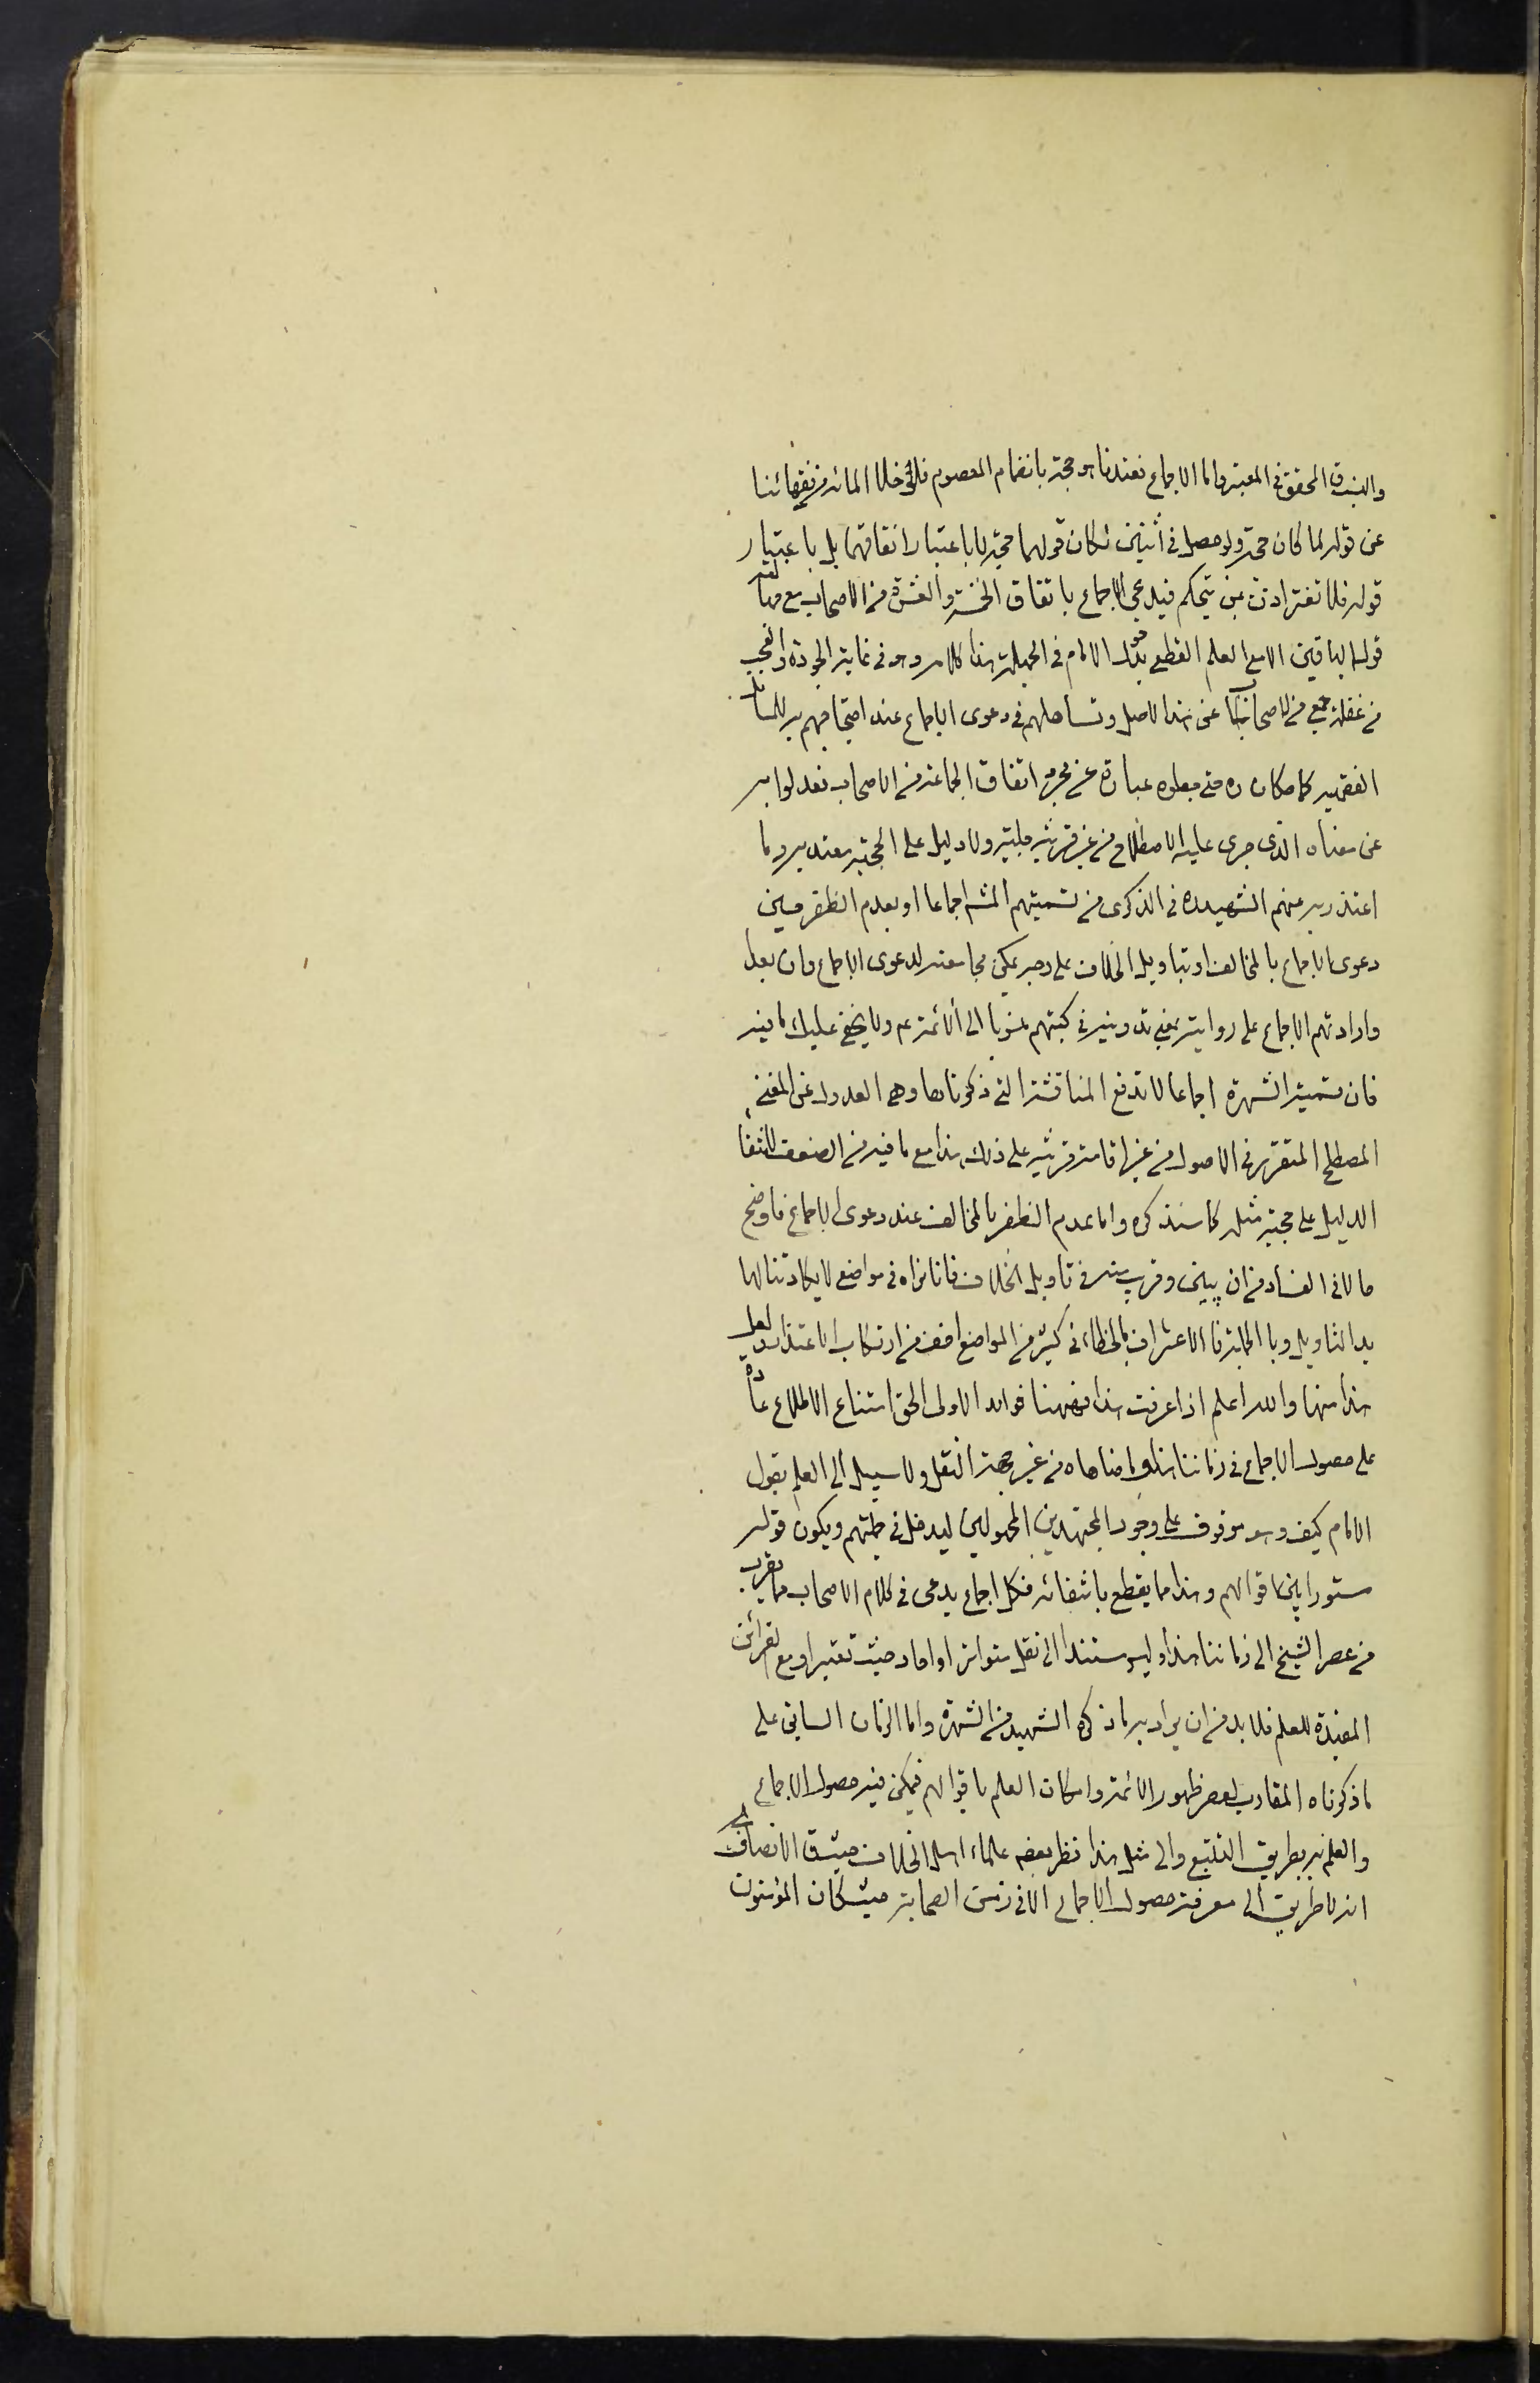 والبينة قال المحقق في المعتبر واما الاجماع فعندنا هو حجة بانضمام المعصوم فلو خلا المائة من فقهائنا
عن قوله لما كان حجة ولو حصل في اثنين لكان قولهما حجة لا باعتبار اتفاقهما بل باعتبار
قوله فلا تغتر اذن بمن يتحكم فيدعي الاجماع باتفاق الخمسة والعشرة من الاصحاب مع جهالة
قول الباقين الا مع العلم القطعي بدخول الامام في الجملة هذا كلامه وهو في غاية الجودة والعجب
من غفلة جمع من الاصحاب عن هذا الاصل وتساهلهم في دعوى الاجماع عند احتجاجهم به للمسائل
الفقهية كما حكاه ره حتى جعلوه عبارة عن مجرد اتفاق الجماعة من الاصحاب فعدلوا به
عن معناه الذي جرى عليه الاصطلاح من غير قرينة جلية ولا دليل على الحجية معتد به وما
اعتذر به عنهم الشهيد ره في الذكرى من تسميتهم المشهور اجماعا او بعدم الظفر حين
دعوى الاجماع بالمخالف او بتاويل الخلاف على وجه يمكن مجامعته لدعوى الاجماع وان بعد
وارادتهم الاجماع على رواية بمعنى تدوينه في كتبهم منسوبا الى الائمة عم ولا يخفى عليك ما فيه
فان تسمية الشهرة اجماعا لا تدفع المناقشة التي ذكرناها وهي العدول عن المعنى
المصطلح المتقرر في الاصول من غير اقامة قرينة على ذلك هذا مع ما فيه من الضعف لانتفاء
الدليل على حجية مثله كما سنذكره واما عدم الظفر بالمخالف عند دعوى الاجماع فاوضح
حالا في الفساد من ان يبين وقريب منه في تاويل الخلاف فانا نراه في مواضع لا يكاد تنالها
يد التاويل وبالجملة فالاعتراف بالخطاء في كثير من المواضع اخف من ارتكاب الاعتذار ولعل
هذا منها والله اعلم اذا عرفت هذا فههنا فوائد الاولى الحق امتناع الاطلاع عادة
على حصول الاجماع في زماننا هذا وما ضاهاه من غير جهة النقل ولا سبيل الى العلم بقول
الامام كيف وهو موقوف على وجود المجتهدين المجهولين ليدخل في جملتهم ويكون قوله
مستورا بين اقوالهم وهذا مما يقطع بانتفائه فكل اجماع يدعى في كلام الاصحاب مما يقرب
من عصر الشيخ الى زماننا هذا وليس مستندا الى نقل متواتر او احاد حيث تعتبر او مع القرائن
المفيدة للعلم فلا بد من ان يراد به ما ذكره الشهيد من الشهرة واما الزمان السابق على
ما ذكرناه المقارب لعصر ظهور الائمة وامكان العلم باقوالهم فيمكن فيه حصول الاجماع
والعلم به بطريق التتبع والى مثل هذا نظر بعض علماء اهل الخلاف حيث قال الانصاف
انه لا طريق الى معرفة حصول الاجماع الا في زمن الصحابة حيث كان المؤمنون